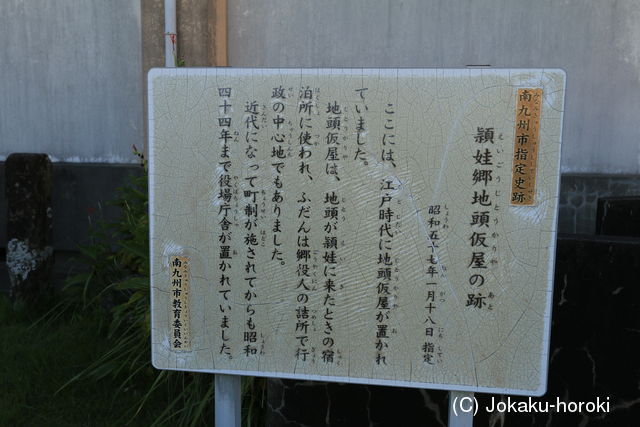 南九州市指定史跡
頴娃郷地頭仮屋の跡
昭和五十七年一月十八日 指定
ここには、江戸時代に地頭仮屋が置かれ
ていました。
地頭仮屋は、地頭が頴娃に来たときの宿
泊所に使われ、ふだんは郷役人の詰所で行
政の中心地でもありました。
近代になって町制が施されてからも昭和
四十四年まで役場庁舎が置かれていました。
南九州市教育委員会
(C) Jokaku-horoki